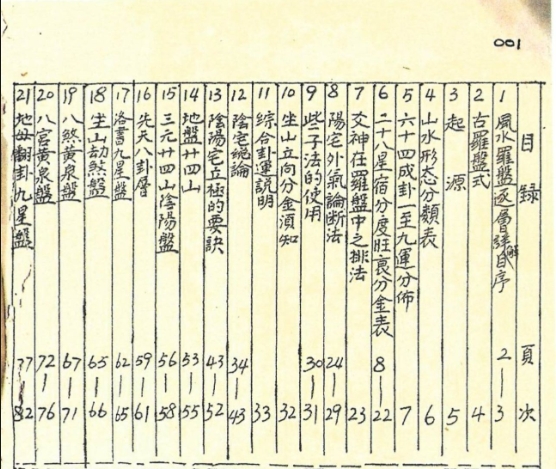 001
目錄 頁次
1 風水羅盤逐層詳解自序 2—3
2 古羅盤式 4
3 起源 5
4 山水形态分類表 6
5 六十四成卦一至九運分佈 7
6 二十八星宿分度旺衰分金表 8—22
7 爻神在羅盤中之排法 23
8 陽宅外氣論断法 24—29
9 些子法的使用 30—31
10 坐山立向分金須知 32
11 綜合卦運説明 33
12 陰宅總論 34—43
13 陰陽宅立極的要訣 43—52
14 地盤廿四山 53—55
15 三元廿四山陰陽盤 56—58
16 先天八卦層 59—61
17 洛書九星盤 62—65
18 坐山劫煞盤 65—66
19 八煞黃泉盤 67—71
20 八宮黃泉盤 72—76
21 地母翻卦九星盤 77—82